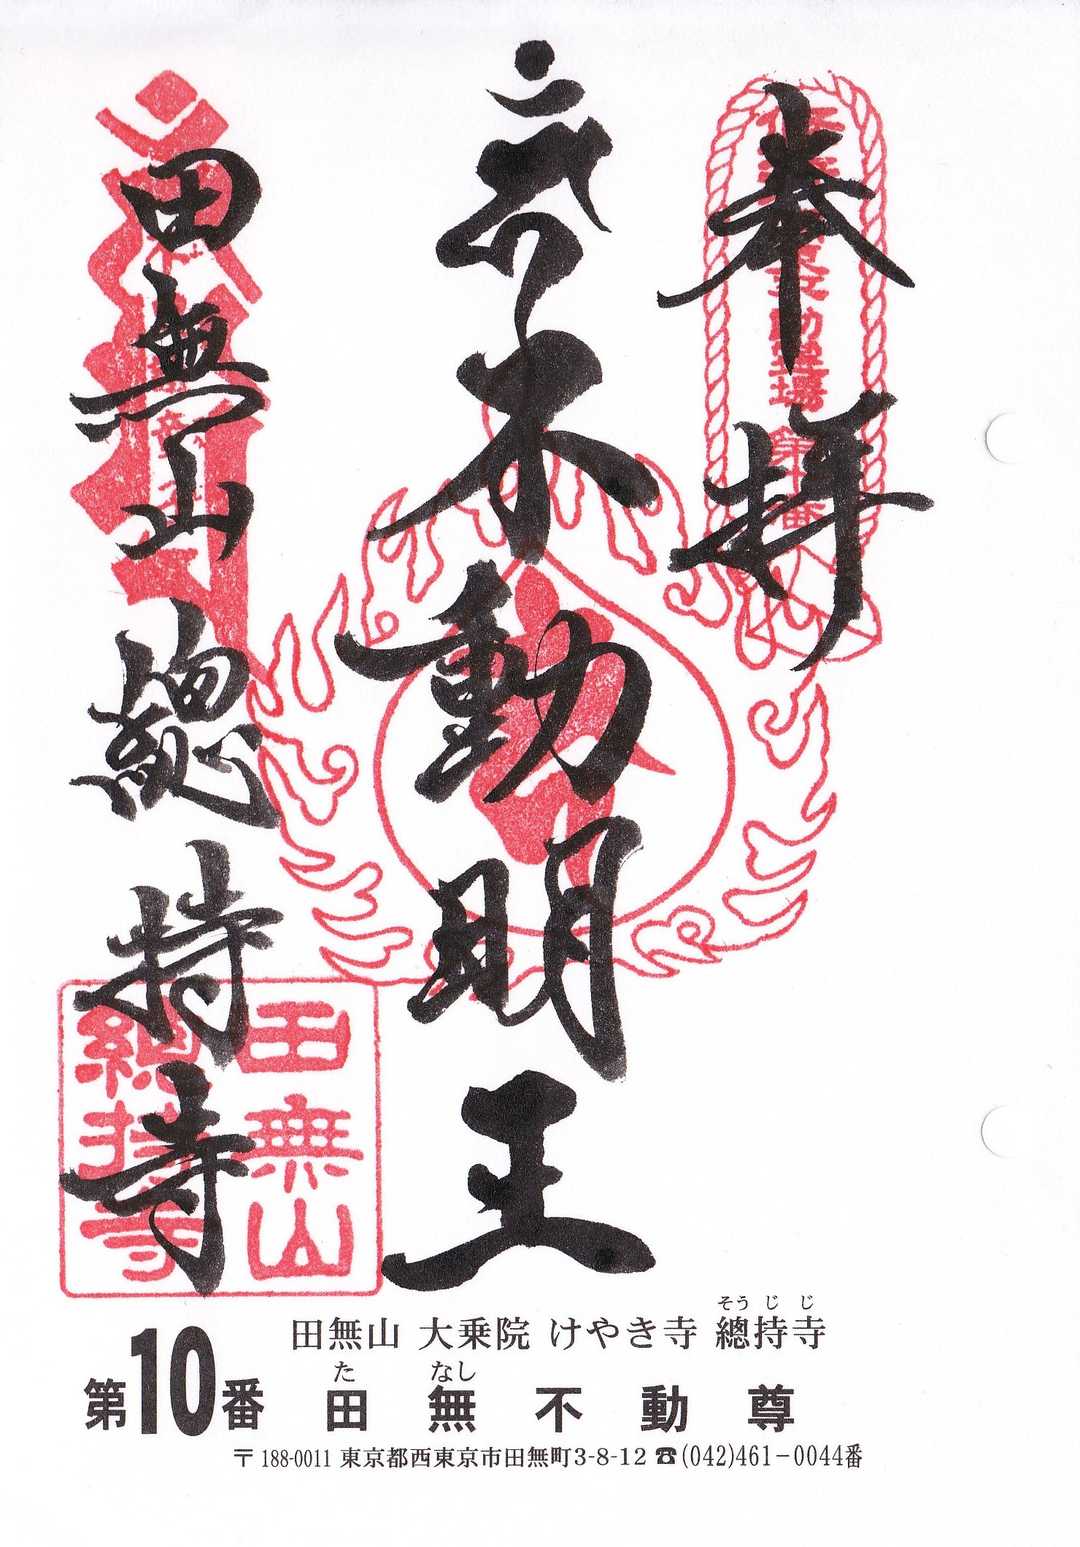 奉拝
不動明王
田無山
總持寺
田無山
總持寺
田無山 大乗院 けやき寺 總持寺
そうじじ
第10番 田無不動尊
たなし
〒188-0011 東京都西東京市田無町3-8-12 ☎(042)461-0044番